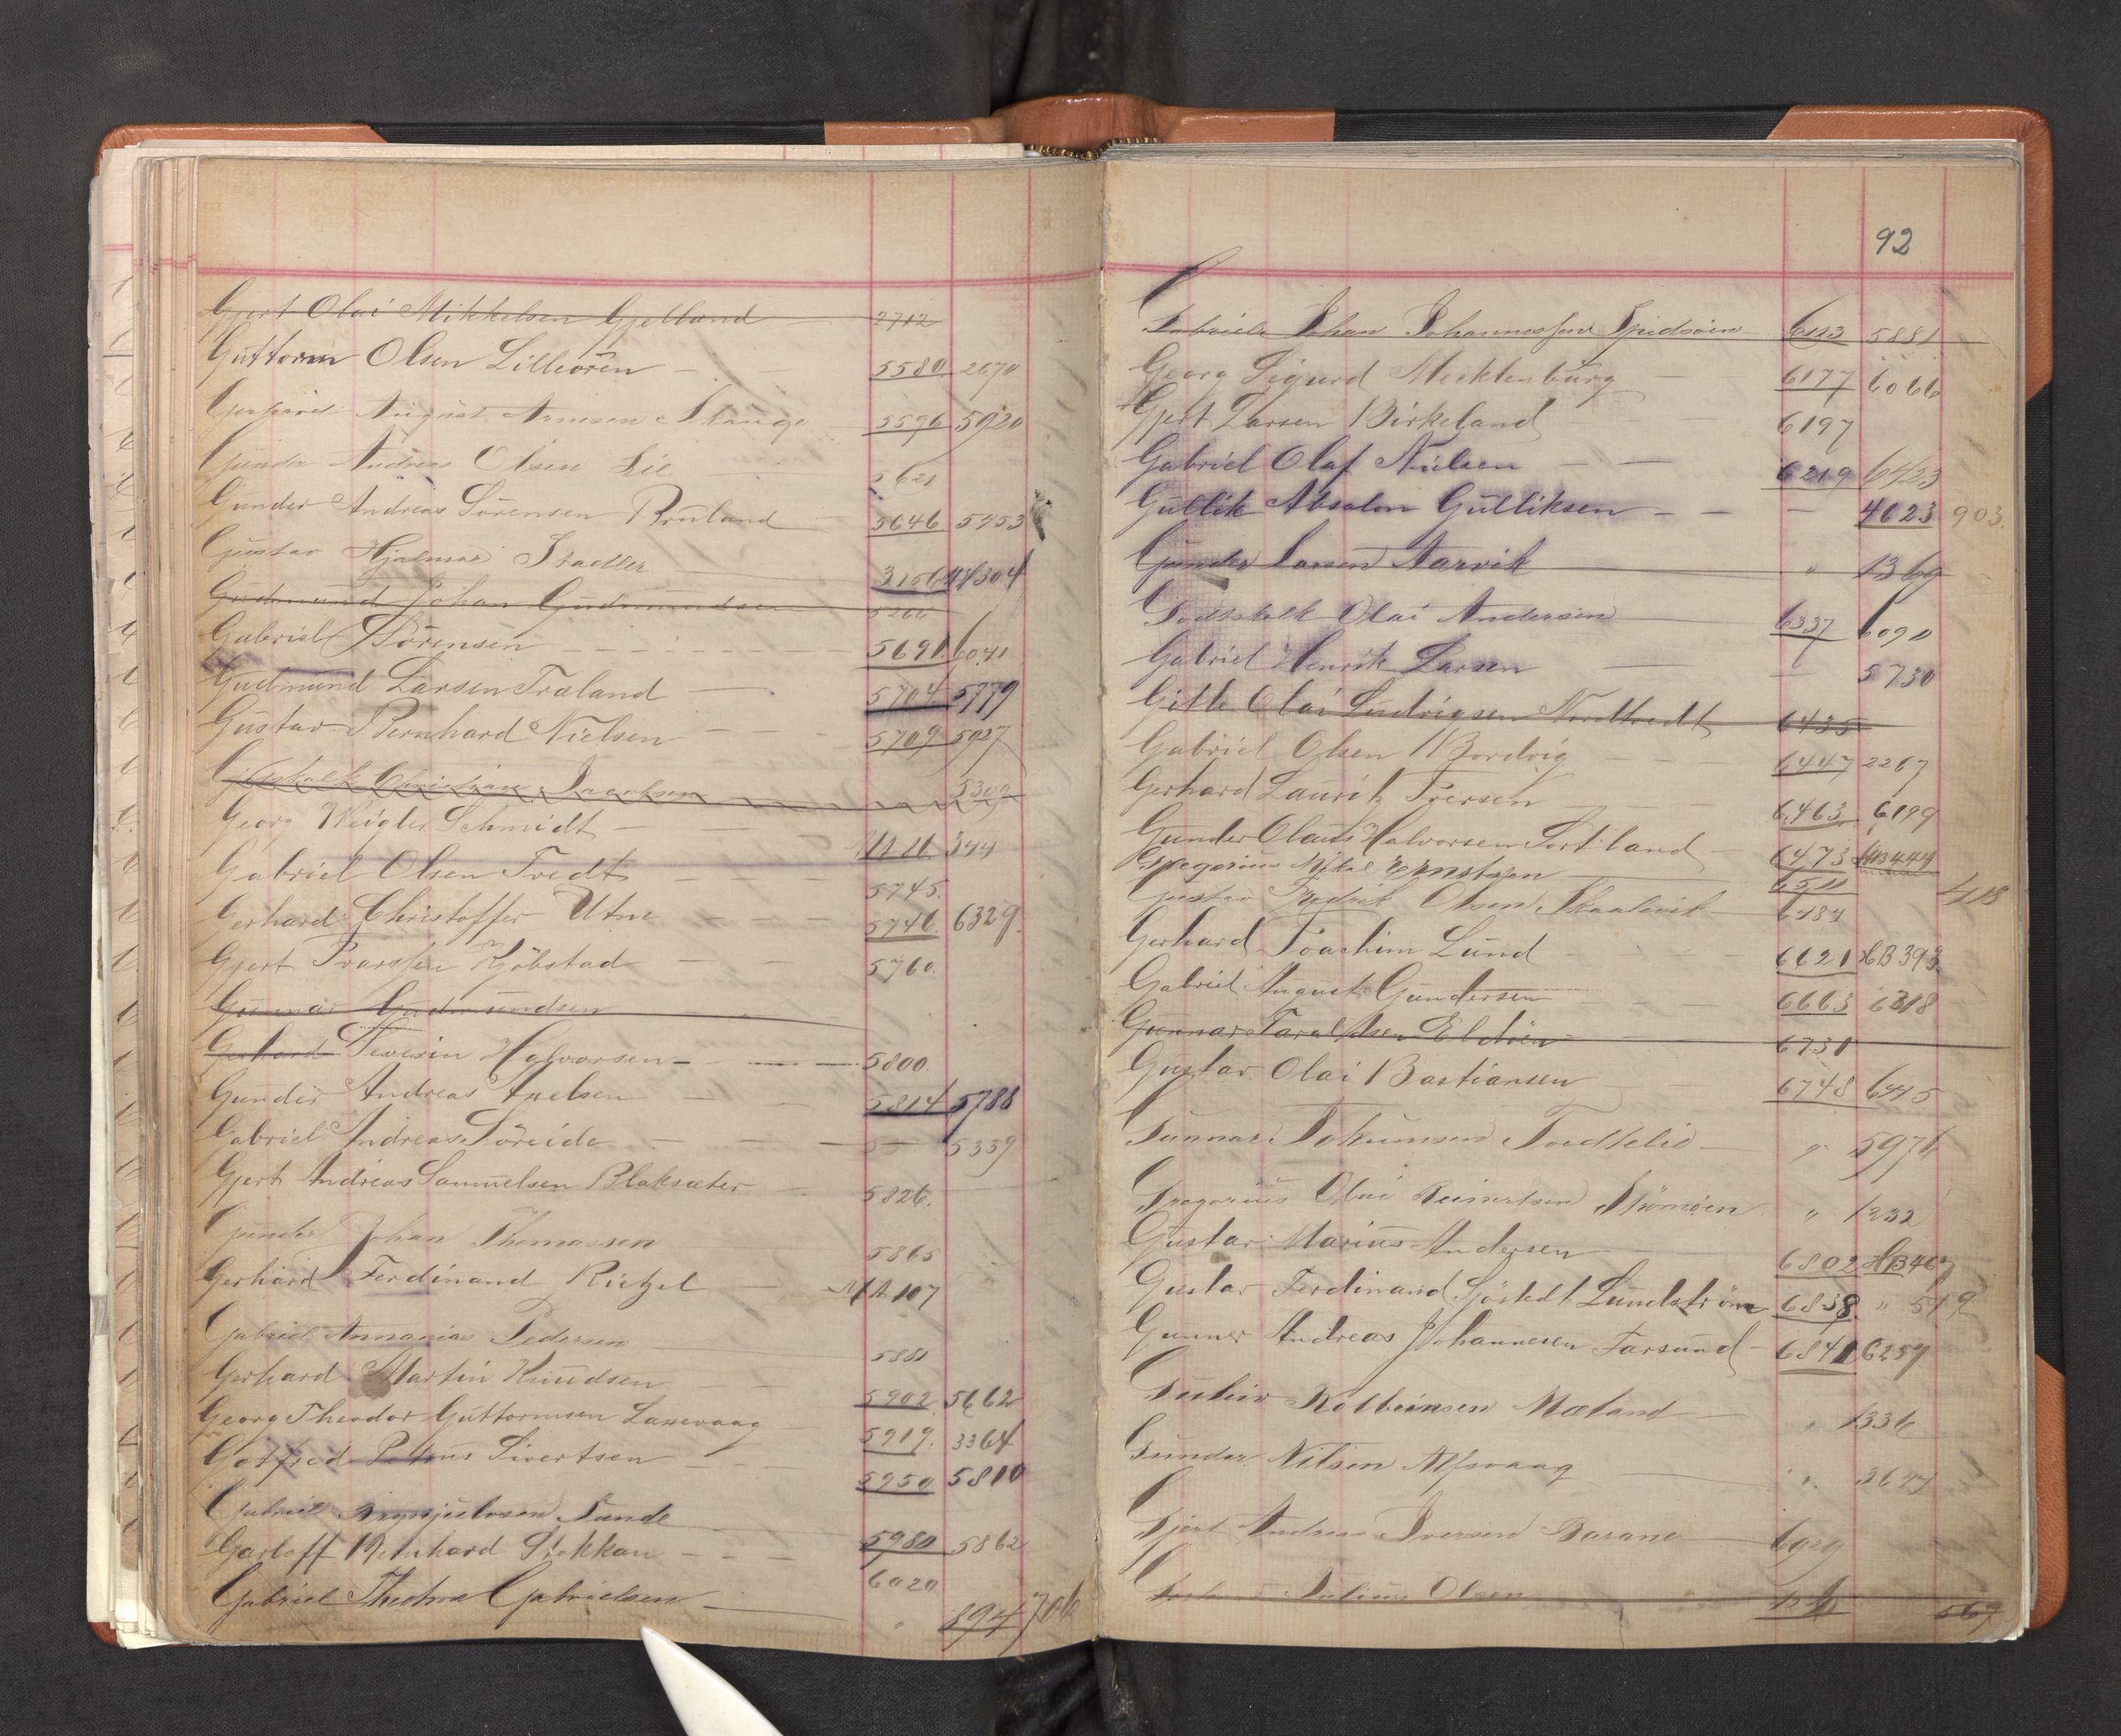 Gjert Olai Mikkelsen Gjelland 2712
Guttorm Olsen Lilleören 5580 2670
Gerhard August Arnesen Skauge 5596 5920
Gunder Andreas Olsen Lie 5621
Gunder Andreas Sörensen Bruland 5646 5753
Gustav Hjalmar Stadler
Gudmund Johan Gudmundsen 5266
Gabriel Sörensen 5691 6041
Gudmund Larsen Træland 5704 5779
Gustav Bernhard Nielsen 5709 5927
Christian Jacobsen 5302
Georg Schmidt 344
Gabriel Olsen Tvedt 5745
Gerhard Christoffer Utne 5746 6329
Gjert Kjöbstad 5760
Gunnar Gudmundsen
Gerhard Severin Halvorsen 5800
Gunder Andreas Axelsen 5814 5788
Gabriel Andreas Söreide 5339
Gjert Andreas Samuelsen Blaksæter 5826
Gunder Johan Thomassen 5865
Gerhard Ferdinand Rietzel MA 107
Gabriel Annanias Pedersen 5881
Gerhard Martin Knudsen 5902 5662
Georg Theodor Guttormsen Laxevaag 5919 3364
Gotfred Petrus Sivertsen 5950 5810
Gabriel Brynjulvsen Sunde 5980 5862
Garloff Meinhard Stokkan 6020
Gabriel Theodor Gabrielsen " 894 706
92
Gabriel Johan Johannessen 6113 5881
Georg Sigurd Mecklenburg 6177 6066
Gjert Larsen Birkeland 6197
Gabriel Olaf Nielsen 6219 6423
Gullik Absalon Gulliksen 4623 903
Gunder Larsen Aarvik " 1369
Godtskalk Olai Andersen 6337 6090
Gabriel Henrik Larsen 5730
Gitle Olai Ludvigsen Nordtvedt 6435
Gabriel Olsen Bordvig 6447 2267
Gerhard Lauritz Iversen 6463 6199
Gunder Olaus Halvorsen Sortland 6473 HB 444
Gregorius Mikal Ernstsen 6511
Gustav Fredrik Olsen Skaalevik 6484 418
Gerhard Joachim Lund 6621 HB 393
Gabriel August Gundersen 6663 6318
Gunnar Taraldsen Eldöen 6731
Gustav Olai Bastiansen 6748 6445
Gunnar Tveitelid " 5976
Gregorius Olai Reinertsen Strömöen " 1232
Gustav Marius Andersen 6802 HB 467
Gustav Ferdinand Sjöstedt Lundström 6838 " 519
Gunner Andreas Johannesen Farsund 6841 6257
Kolbeinsen Mæland " 1336
Gunder Nilsen Alfsvaag " 3677
Gjert Andreas Iversen 6929
Julius Olsen 567